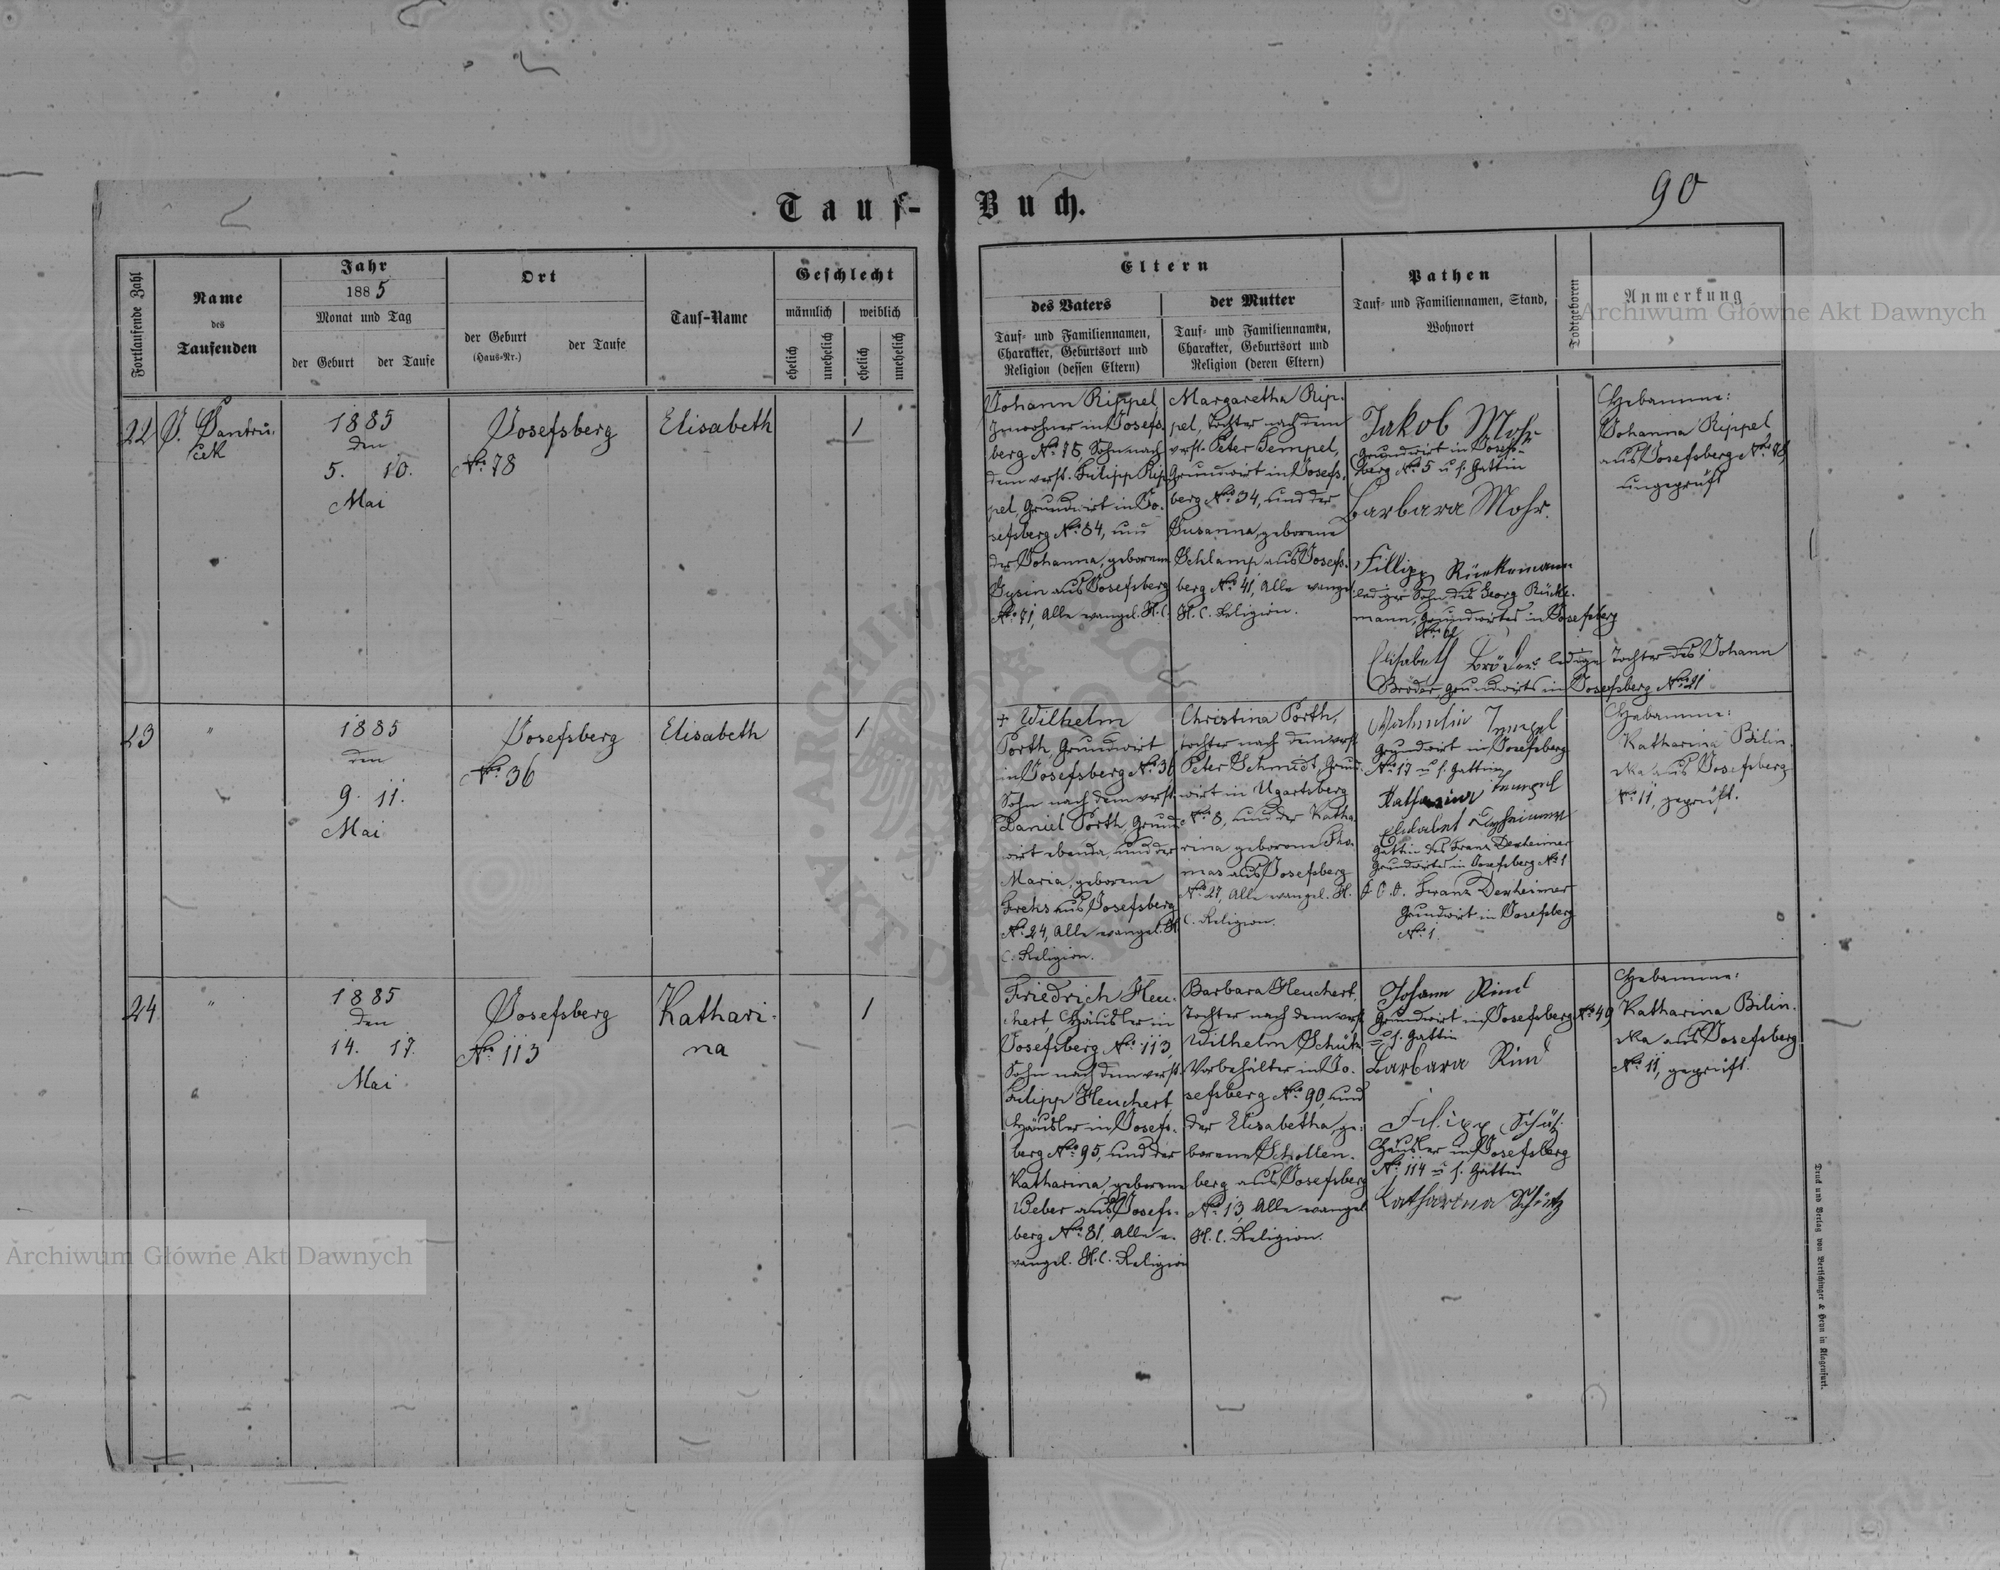 Tauf-Buch.
90
Fortlaufende Zahl
Name
des
Taufenden
Jahr
1885
Monat und Tag
der Geburt
der Taufe
Ort
der Geburt
(Haus-Nr.)
der Taufe
Tauf-Name
Geschlecht
männlich
weiblich
ehelich
unehelich
ehelich
unehelich
Eltern
des Vaters
Tauf- und Familiennamen,
Charakter, Geburtsort und
Religion (dessen Eltern)
der Mutter
Tauf- und Familiennamen,
Charakter, Geburtsort und
Religion (deren Eltern)
Pathen
Tauf- und Familiennamen, Stand,
Wohnort
Todtgeboren
Anmerkung
Archiwum Główne Akt Dawnych
22
1885
den
5. 10.
Mai
Josefsberg
No. 78
Elisabeth
1
Johann Rippel
Inwohner in Josefs-
berg No. 78, Sohn nach
dem verst. Filipp Rip-
pel, Grundwirt in Jo-
sefsberg No. 84, und
der Johanna, geborene
Gysin aus Josefsberg
No. 71, Alle evangel. H. C.
Margaretha Rip-
pel, Tochter nach dem
verst. Peter Tempel,
Grundwirt in Josefs-
berg No. 34, und der
Susanna, geborene
Schlamp aus Josefs-
berg No. 41, Alle evangel.
H. C. Religion.
Jakob Mohr
Grundwirt in Josefs-
berg No. 5 u. s. Gattin
Barbara Mohr.
Fillipp Rückemann
lediger Sohn des Georg Rücke-
mann, Grundwirtes in Josefsberg
Elisabeth Bröder ledige Tochter des Johann
Bröder, Grundwirts in Josefsberg No. 21
Hebamme:
Johanna Rippel
aus Josefsberg No. 78,
ungeprüft
23
"
1885
den
9. 11.
Mai
Josefsberg
No. 36
Elisabeth
1
+ Wilhelm
Porth, Grundwirt
in Josefsberg No. 36
Sohn nach dem verst.
Daniel Porth, Grund-
wirt ebenda, und der
Maria, geborene
aus Josefsberg
No. 24, Alle evangel. H.
C. Religion.
Christina Porth,
Tochter nach dem verst.
Peter Schmidt, Grund-
wirt in Ugartsberg
No. 8, und der Katha-
rina geborene Tho-
mas aus Josefsberg
No. 27, Alle evangel. H.
C. Religion.
Grundwirt in Josefsberg
No. 17 u. s. Gattin
Gattin des Franz Dexheimer
Grundwirtes in Josefsberg No. 1
Franz Dexheimer
Grundwirt in Josefsberg
No. 1.
Hebamme:
Katharina Bilin-
ska aus Josefsberg
No. 11, geprüft.
24
"
1885
den
14. 17.
Mai
Josefsberg
No. 113
Kathari-
na
1
Friedrich Heu-
chert, Häusler in
Josefsberg No. 113,
Sohn nach dem verst.
Filipp Heuchert
Häusler in Josefs-
berg No. 95, und der
Katharina, geborene
Weber aus Josefs-
berg No. 81, Alle e-
vangel. H. C. Religion
Barbara Heuchert,
Tochter nach dem verst.
Wilhelm Schütz
Vorbehälter in Jo-
sefsberg No. 90, und
der Elisabetha, ge-
borene Schollen-
berg aus Josefsberg
No. 13, Alle evangel.
H. C. Religion.
Johann Rind
Grundwirt in Josefsberg No. 49
u. s. Gattin
Barbara Rind
Filipp Schütz
Häusler in Josefsberg
No. 114 u. s. Gattin
Katharina Schütz
Hebamme:
Katharina Bilin-
ska aus Josefsberg
No. 11, geprüft.
Archiwum Główne Akt Dawnych
Druck und Verlag von Bertschinger & Heyn in Klagenfurt.